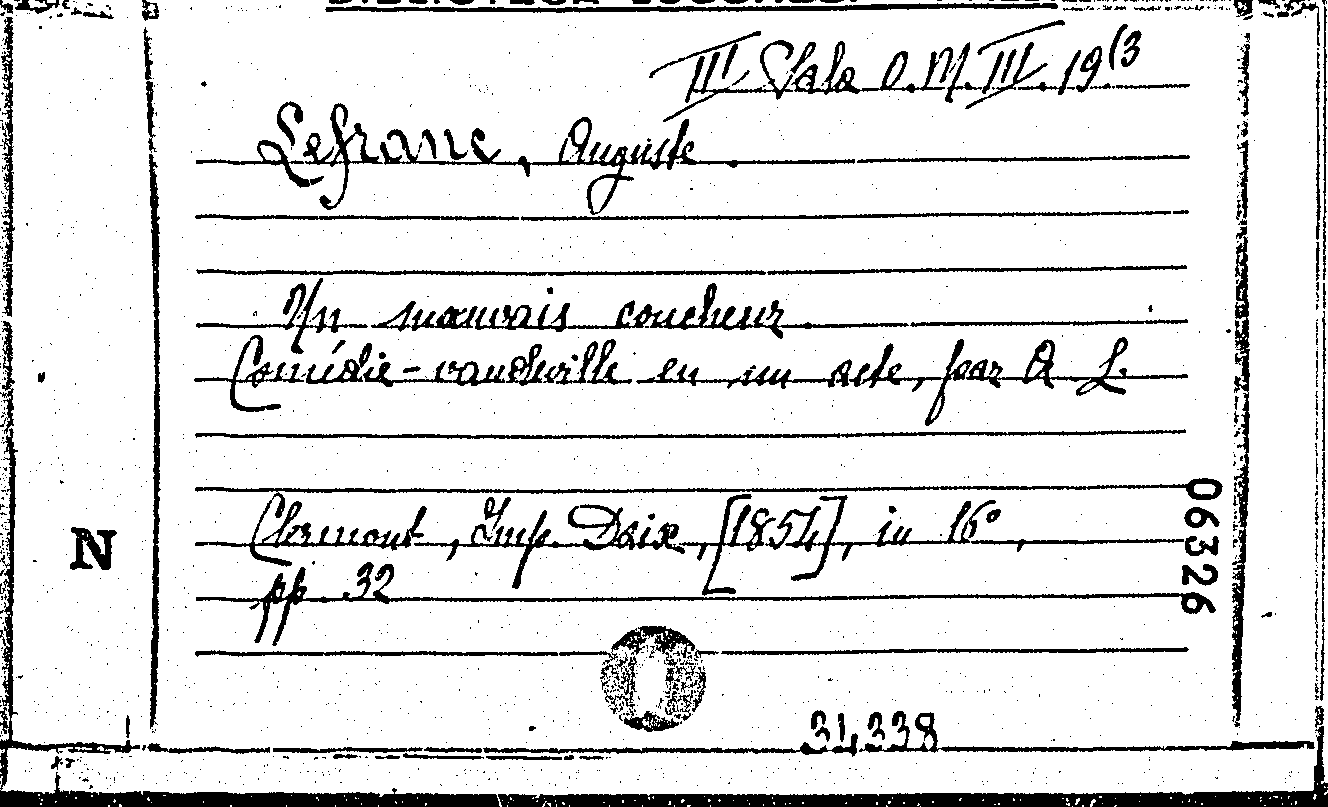 III Sala O. M. III. 19 (3
Lefranc, Auguste.
Un mauvais coucheur.
Comédie-vaudeville en un acte, par A L.
Clermont, Imp. Daix, [1854], in 16°,
pp. 32
N
06326
31,338